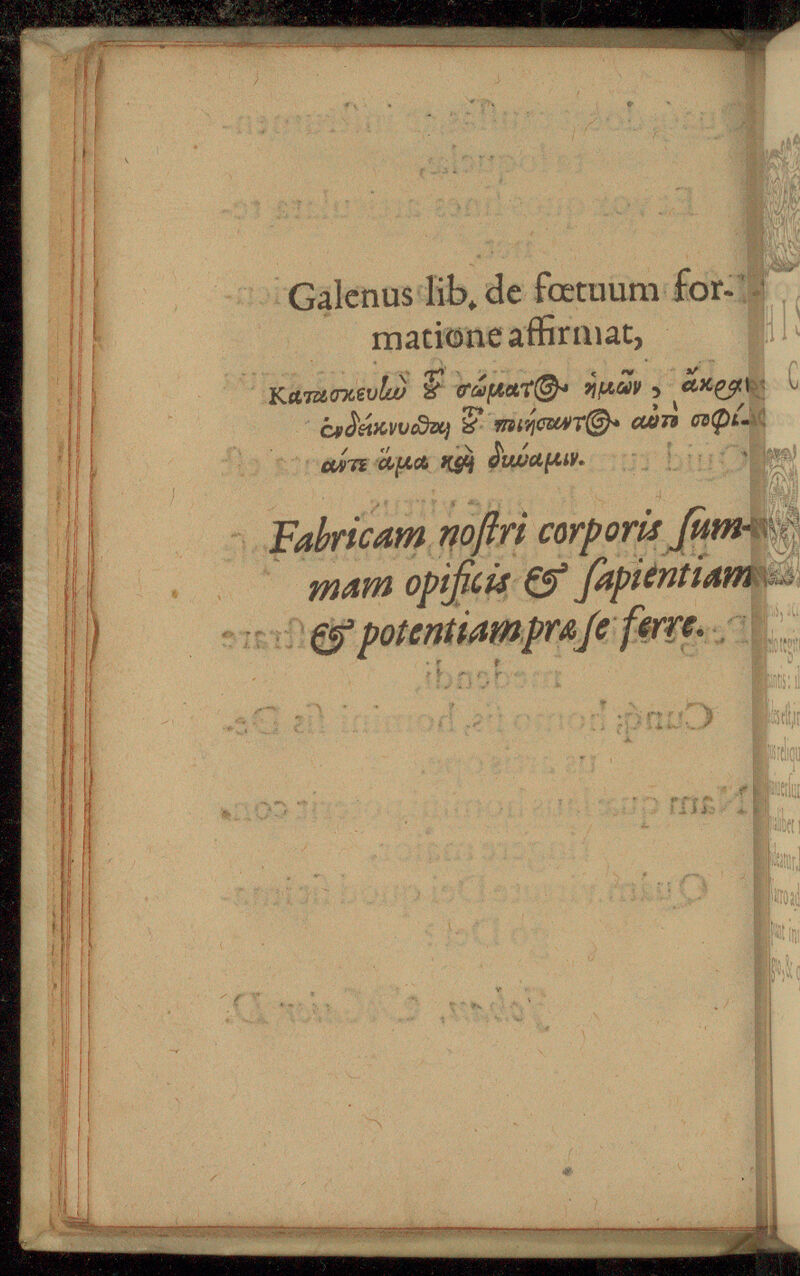 Galenus lib. de fœtuum for-
matione affirmat,
Κατασκευὴν τ͂ σώματος ἡμῶν, ἄκραν
ἐνδείκνυσθαι τ͂ ποιήσαντος αὐτὸ σοφί-
αν τε ἅμα καὶ δύναμιν.
Fabricam nostri corporis sum-
mam opificis & sapientiam
& potentiam præ se ferre.